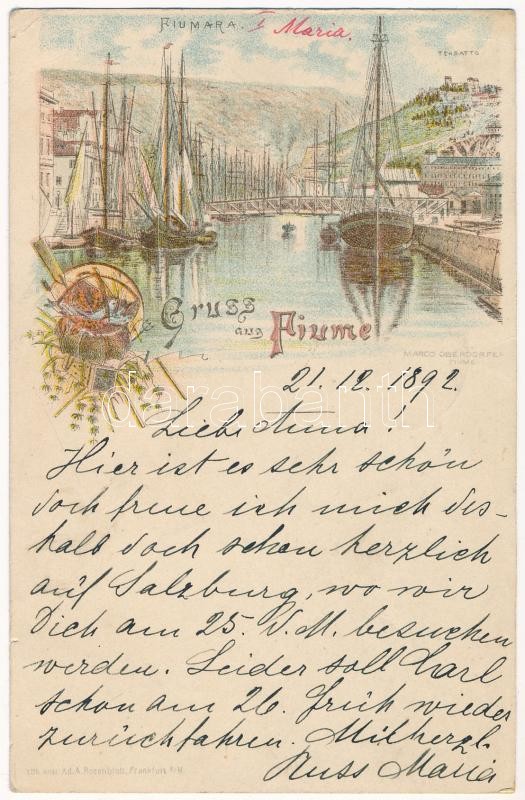 FIUMARA. I Maria.
TERSATTO
Gruss
aus Fiume
MARCO OBERDORFER
FIUME
darabanth
21. 12. 1892.
Liebe Anna!
Hier ist es sehr schön
doch freue ich mich des-
halb doch schon herzlich
auf Salzburg, wo wir
Dich am 25. d. M. besuchen
werden. Leider soll Carl
schon am 26. früh wieder
zurückfahren. Mit herzl.
Kuss Maria
Lith. Anst. Ad. A. Rosenblatt, Frankfurt a/M.